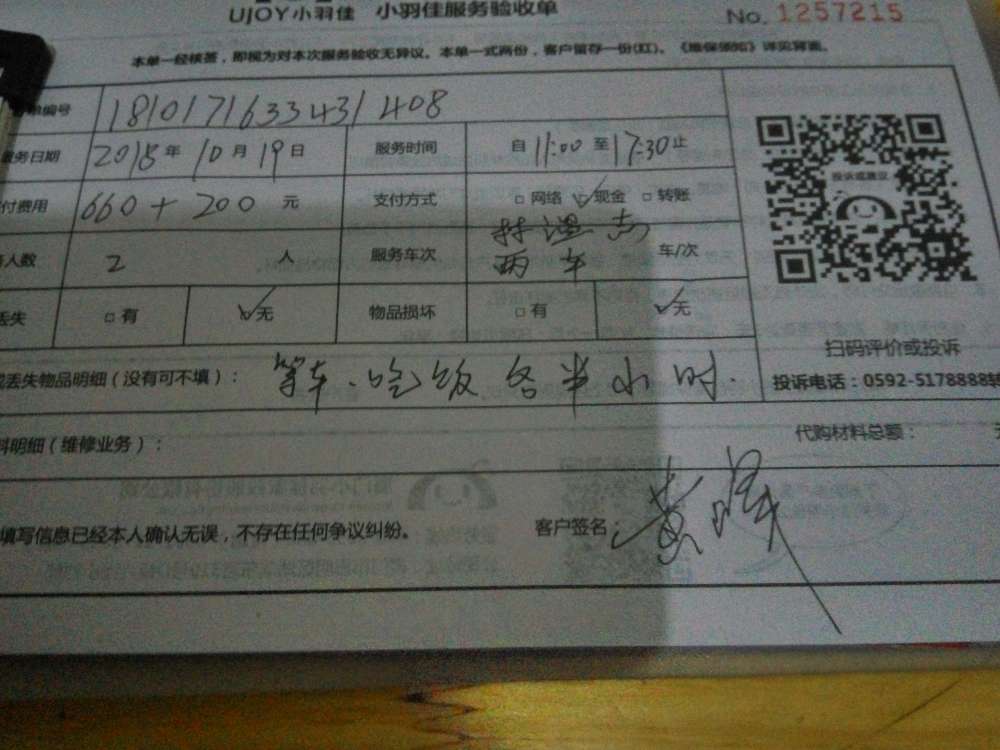 UJOY小羽佳 小羽佳服务验收单 No. 1257215
本单一经核签，即视为对本次服务验收无异议。本单一式两份，客户留存一份(红)。《维保须知》详见背面。
单编号 181017163343 1408
服务日期 2018年10月19日 服务时间 自11:00至17:30止
付费用 660+200 元 支付方式 网络 现金 转账
人数 2 人 服务车次 两车 车/次
丢失 有 无 物品损坏 有 无
投诉或建议
扫码评价或投诉
投诉电话：0592-5178888转
丢失物品明细（没有可不填）： 等车、吃饭各半小时.
料明细（维修业务）： 代购材料总额：
填写信息已经本人确认无误，不存在任何争议纠纷。 客户签名： 黄